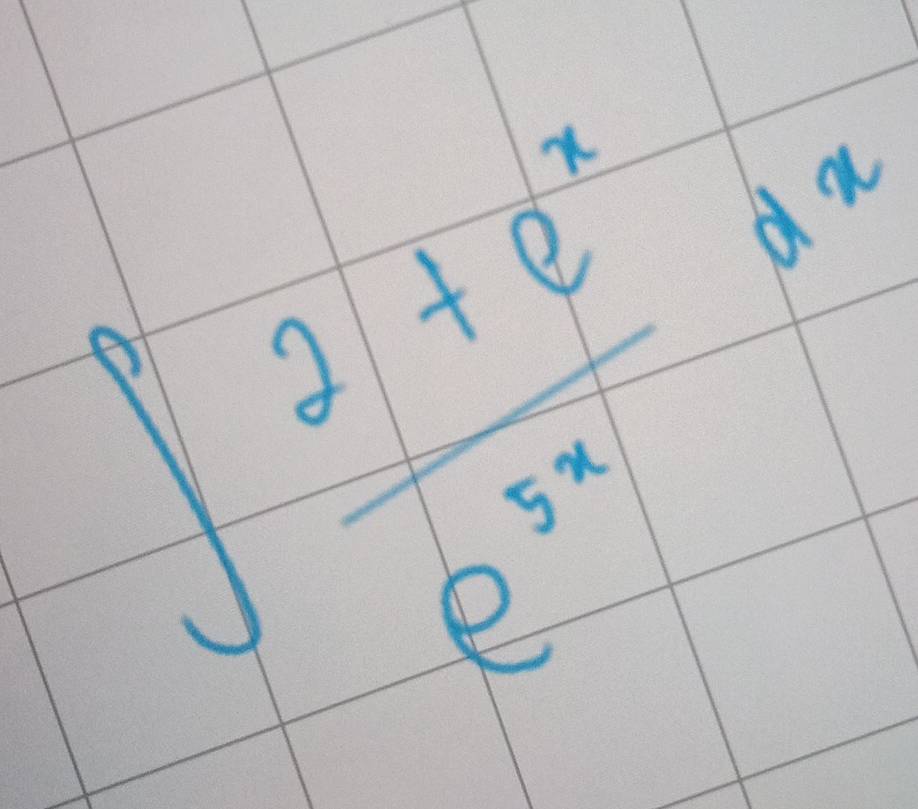 ∫ (2 + e^x) / e^(5x) dx